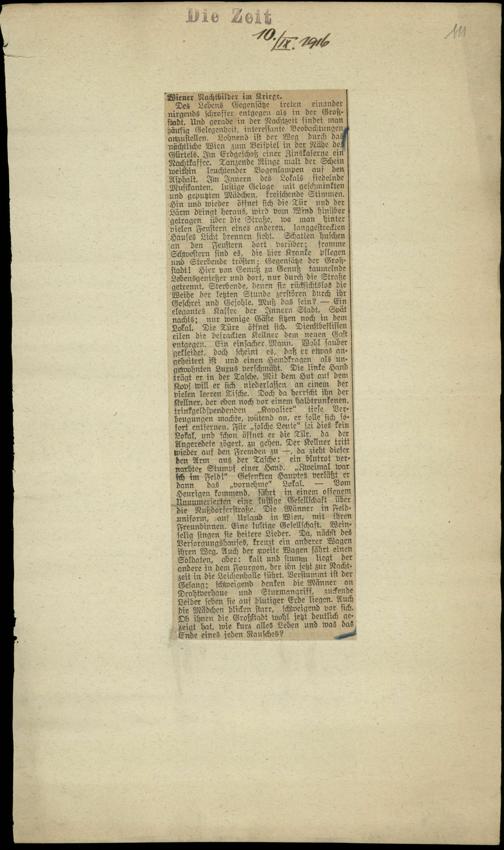 Die Zeit
10./IX. 1916
111
Wiener Nachtbilder im Kriege.
Des Lebens Gegensätze treten einander
nirgends schroffer entgegen als in der Groß-
stadt. Und gerade in der Nachtzeit findet man
häufig Gelegenheit, interessante Beobachtungen
anzustellen. Lohnend ist der Weg durch das
nächtliche Wien zum Beispiel in der Nähe des
Gürtels. Im Erdgeschoß einer Zinskaserne ein
Nachtkaffee. Tanzende Ringe malt der Schein
weithin leuchtender Bogenlampen auf den
Asphalt. Im Innern des Lokals fiedelnde
Musikanten, lustige Gelage mit geschminkten
und geputzten Mädchen, kreischende Stimmen.
Hin und wieder öffnet sich die Tür und der
Lärm dringt heraus, wird vom Wind hinüber
getragen über die Straße, wo man hinter
vielen Fenstern eines anderen, langgestreckten
Hauses Licht brennen sieht. Schatten huschen
an den Fenstern dort vorüber; fromme
Schwestern sind es, die hier Kranke pflegen
und Sterbende trösten; Gegensätze der Groß-
stadt! Hier von Genuß zu Genuß taumelnde
Lebensgenießer und dort, nur durch die Straße
getrennt, Sterbende, denen sie rücksichtslos die
Weihe der letzten Stunde zerstören durch ihr
Geschrei und Gejohle. Muß das sein? — Ein
elegantes Kaffee der Innern Stadt. Spät
nachts; nur wenige Gäste sitzen noch in dem
Lokal. Die Türe öffnet sich. Dienstbeflissen
eilen die befrackten Kellner dem neuen Gast
entgegen. Ein einfacher Mann. Wohl sauber
gekleidet, doch scheint es, daß er etwas an-
geheitert ist und einen Hemdkragen als un-
gewohnten Luxus verschmäht. Die linke Hand
trägt er in der Tasche. Mit dem Hut auf dem
Kopf will er sich niederlassen an einem der
vielen leeren Tische. Doch da herrscht ihn der
Kellner, der eben noch vor einem halbtrunkenen,
trinkgeldspendenden „Kavalier" tiefe Ver-
beugungen machte, wütend an, er solle sich so-
fort entfernen. Für „solche Leute" sei dies kein
Lokal, und schon öffnet er die Tür, da der
Angeredete zögert, zu gehen. Der Kellner tritt
wieder auf den Fremden zu —, da zieht dieser
den Arm aus der Tasche: ein blutrot ver-
narbter Stumpf einer Hand. „Zweimal war
ich im Feld!" Gesenkten Hauptes verläßt er
dann das „vornehme" Lokal. — Vom
Heurigen kommend, fährt in einem offenen
Unnumerierten eine lustige Gesellschaft über
die Nußdorferstraße. Die Männer in Feld-
uniform, auf Urlaub in Wien, mit ihren
Freundinnen. Eine lustige Gesellschaft. Wein-
selig singen sie heitere Lieder. Da, nächst des
Versorgungshauses, kreuzt ein anderer Wagen
ihren Weg. Auch der zweite Wagen führt einen
Soldaten, aber: kalt und stumm liegt der
andere in dem Fourgon, der ihn jetzt zur Nacht-
zeit in die Leichenhalle führt. Verstummt ist der
Gesang; schweigend denken die Männer an
Drahtverhaue und Sturmangriff, zuckende
Leider sehen sie auf blutiger Erde liegen. Auch
die Mädchen blicken starr, schweigend vor sich.
Ob ihnen die Großstadt wohl jetzt deutlich ge-
zeigt hat, wie kurz alles Leben und was das
Ende eines jeden Rausches?